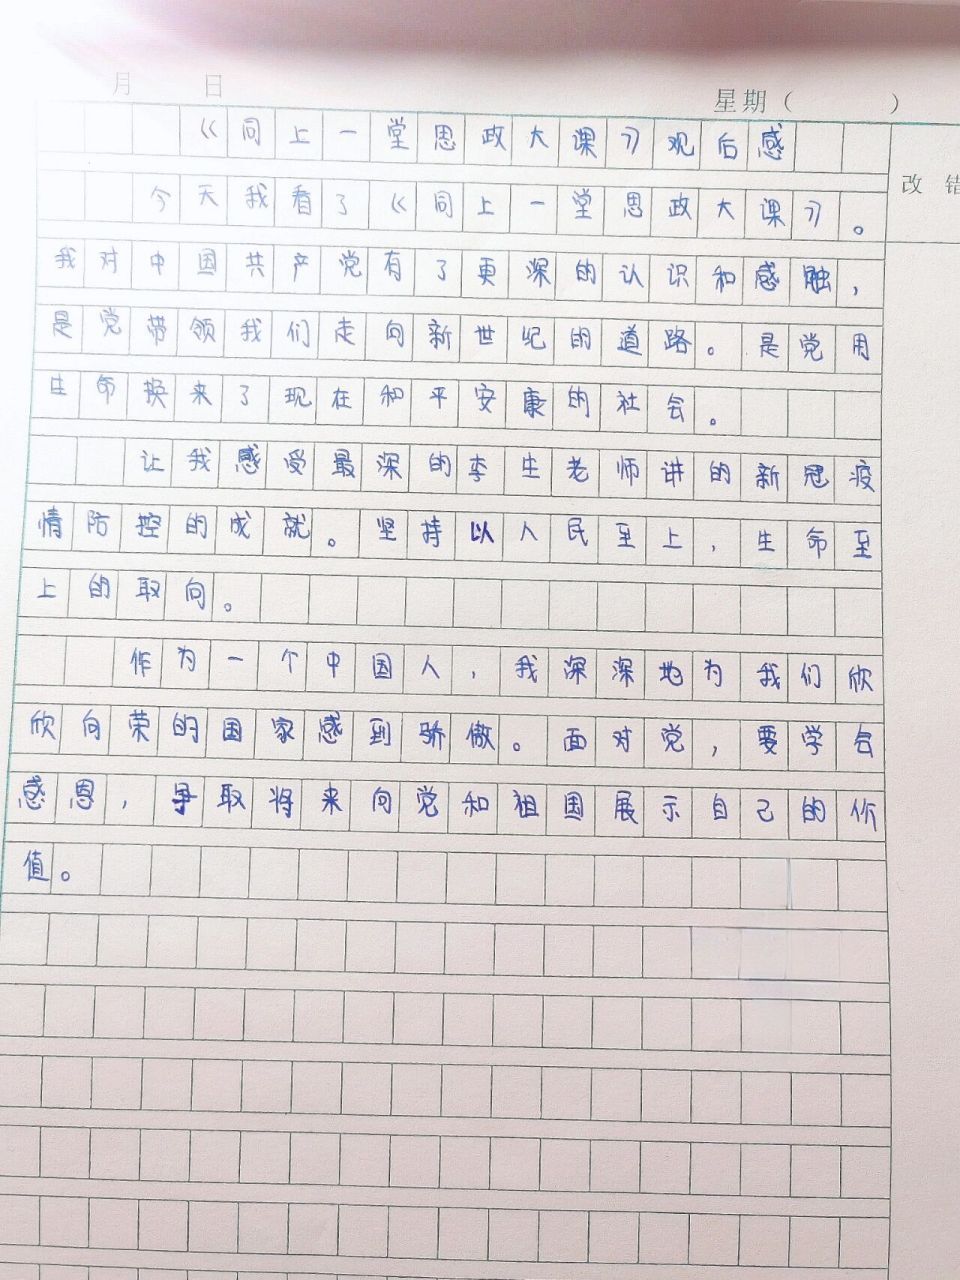 月 日 星期（ ）
《同上一堂思政大课》观后感
改 错
今天我看了《同上一堂思政大课》。
我对中国共产党有了更深的认识和感触，
是党带领我们走向新世纪的道路。是党用
生命换来了现在和平安康的社会。
让我感受最深的李生老师讲的新冠疫
情防控的成就。坚持以人民至上，生命至
上的取向。
作为一个中国人，我深深地为我们欣
欣向荣的国家感到骄傲。面对党，要学会
感恩，争取将来向党和祖国展示自己的价
值。